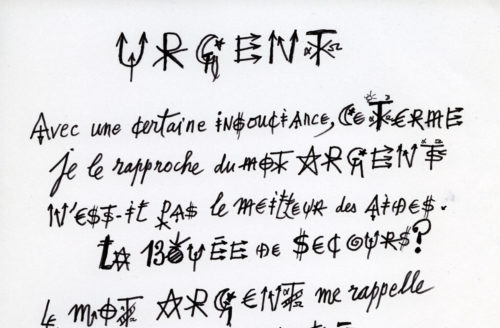 URGENT
Avec une certaine insouciance, CE TERME
je le rapproche du mot ARGENT
N'EST-il PAS le meilleur des AIDES.
LA BOUÉE DE SECOURS?
Le MOT ARGENT me rappelle